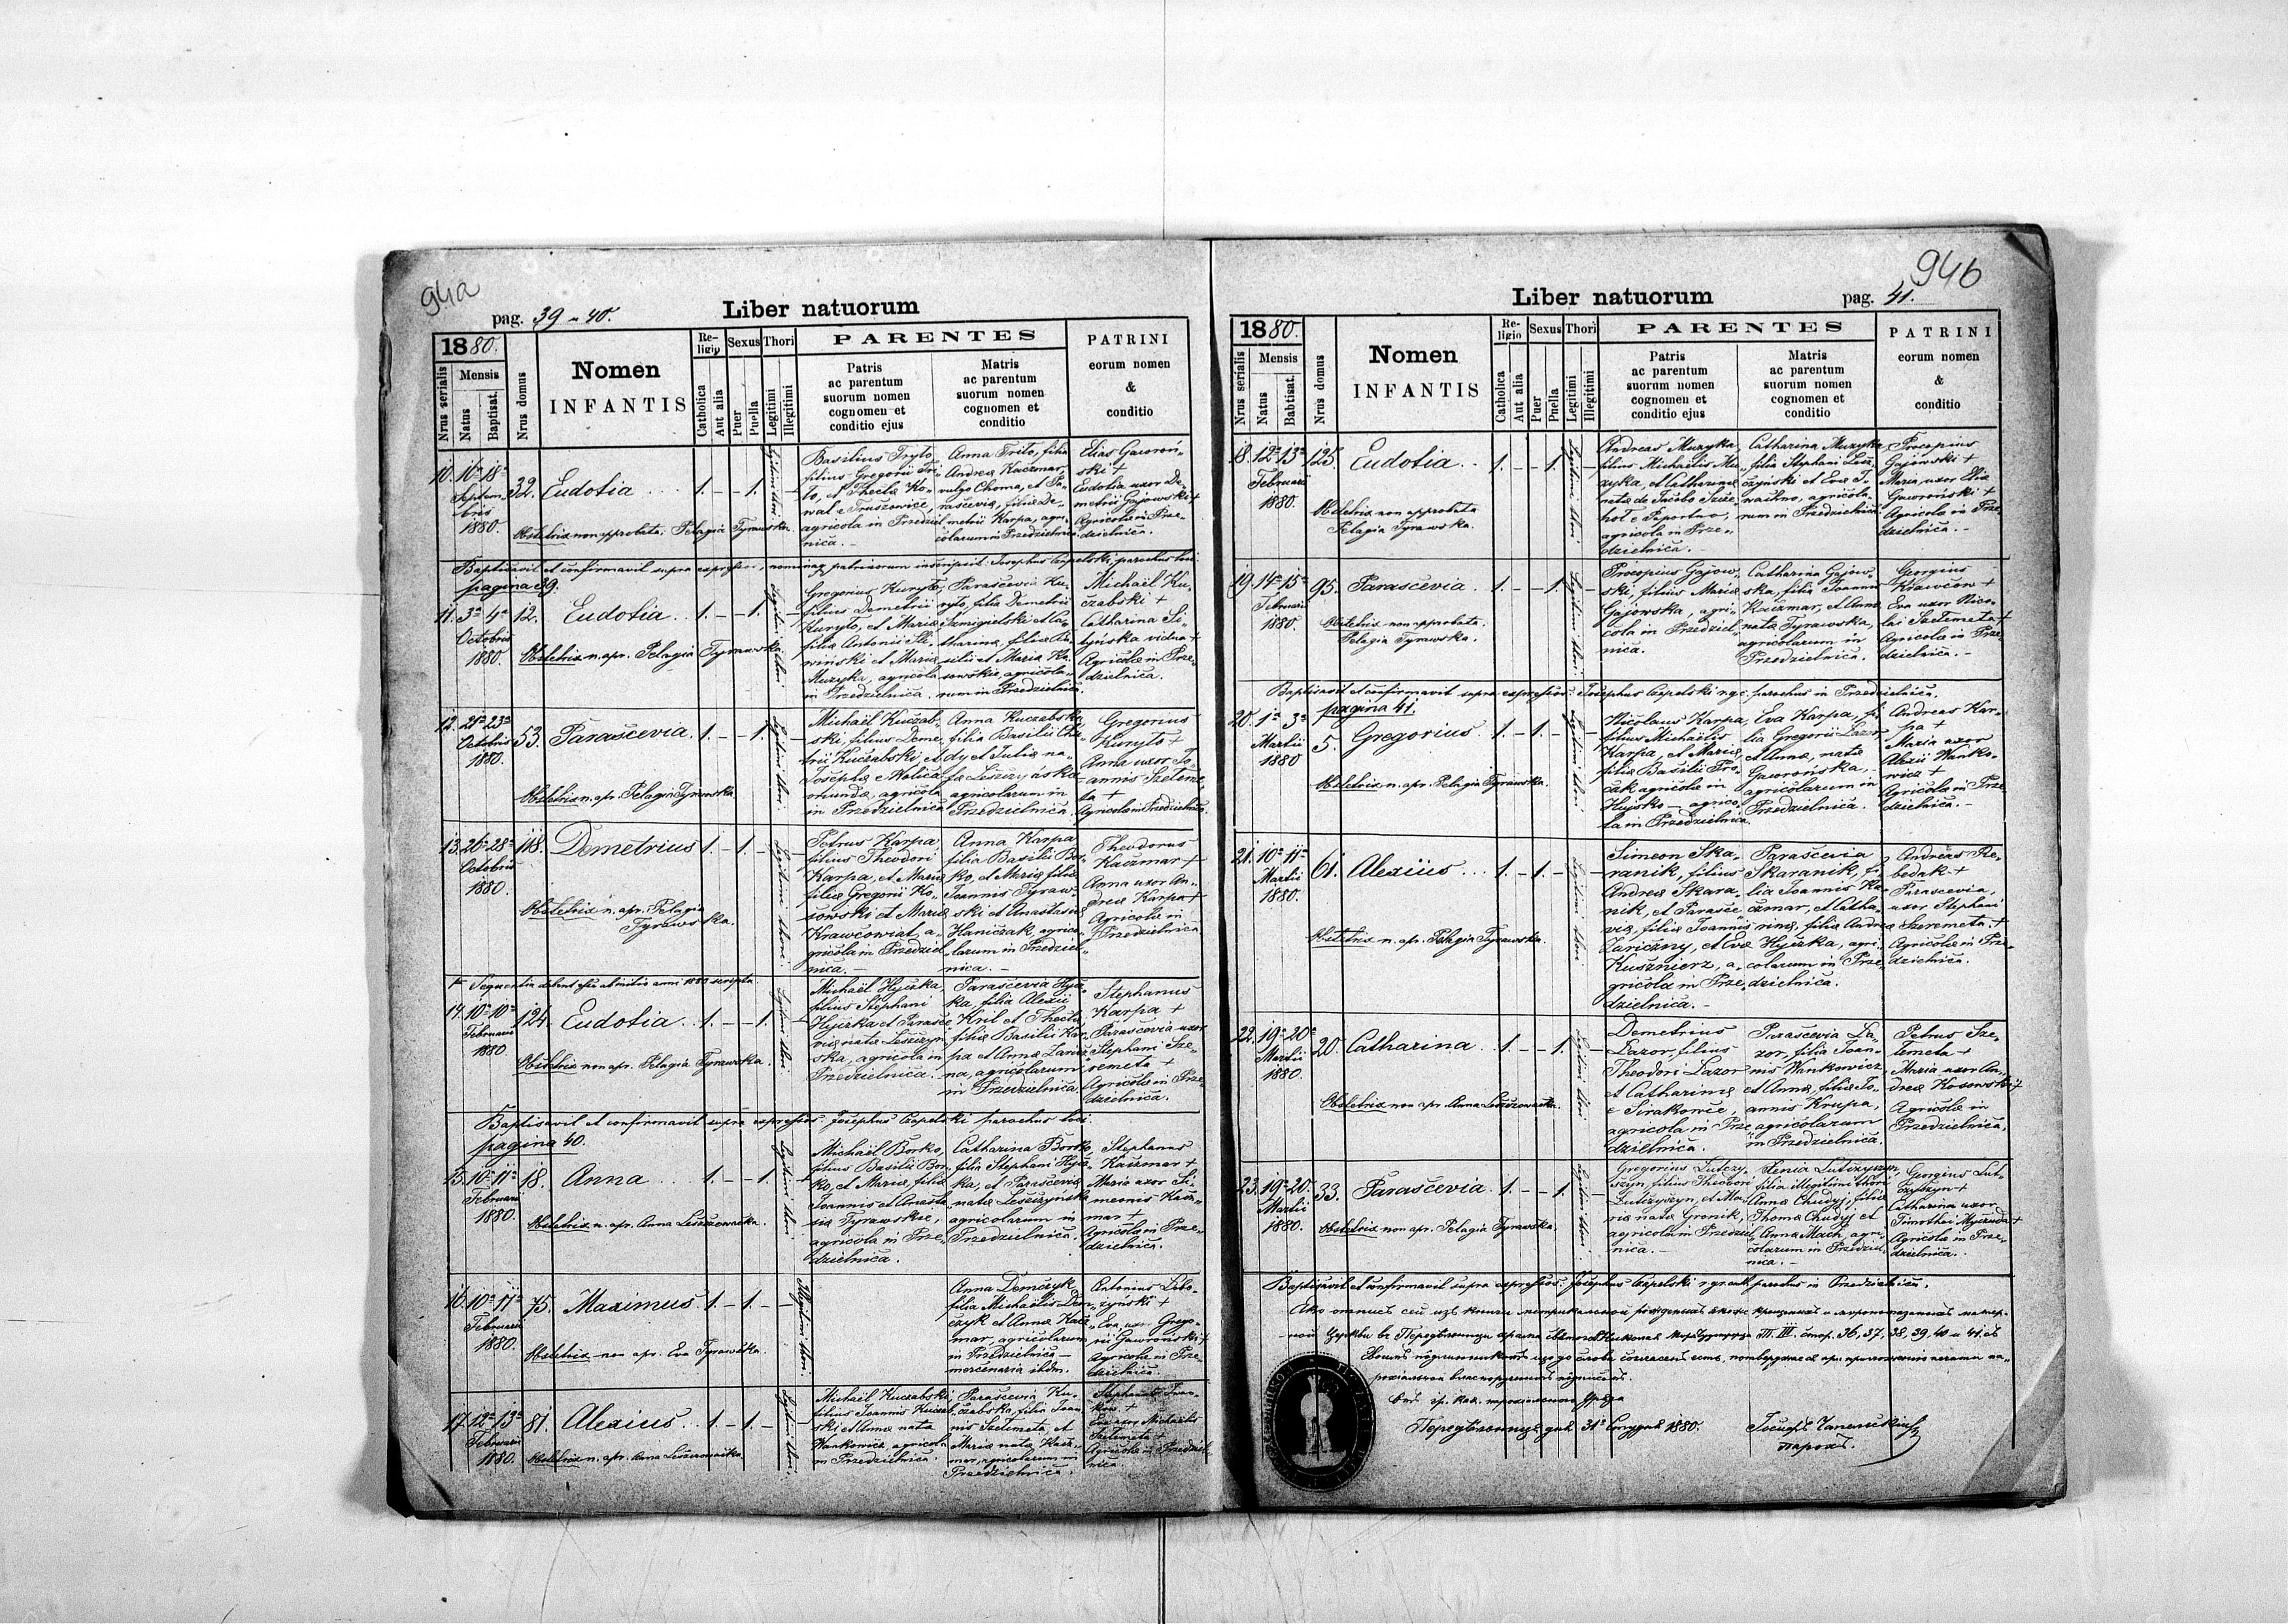 94a
pag. 39 - 40.
Liber natuorum
1880.
Nrus serialis
Mensis
Natus
Baptisat.
Nrus domus
Nomen
INFANTIS
Re-
ligio
Catholica
Aut alia
Sexus
Puer
Puella
Thori
Legitimi
Illegitimi
PARENTES
Patris
ac parentum
suorum nomen
cognomen et
conditio ejus
Matris
ac parentum
suorum nomen
cognomen et
conditio
PATRINI
eorum nomen
&
conditio
10. 16a 18a
Septem
bris
1880.
32. Eudotia 1. - - 1.
Obstetrix non approbata, Pelagia Tyrawska.
Basilius Tryto,
filius Gregorii Tri-
to, et Thecla Ko-
wal e Truszowice,
agricola in Przedziel
nica. -
Anna Trito, filia
Andreae Kaczmar,
vulgo Choma, et Pa-
rasceviae, filiae De-
metrii Karpa, agri-
colarum in Przedzielnica.
Elias Gaworoń-
ski +
Eudotia uxor De-
metrii Gajowski +
Agricolae in Prze-
dzielnica.
Baptisavit et confirmavit supra expressos, nomina patrinorum inscripsit: Josephus Czapelski, parochus loci.
pagina 39.
11. 3a 4a
Octobris
1880.
12. Eudotia 1. - - 1.
Obstetrix n. apr. Pelagia Tyrawska.
Gregorius Kuryto,
filius Demetrii
Kuryto, et Mariae
filia Antonii Sli-
wiński et Maria
Muzyka, agricola
in Przedzielnica.
Parascevia Ku-
ryto, filia Demetrii
Szmigielski et Ca-
tharinae, filiae Ba-
silii et Maria Ko-
sowskie, agricola-
rum in Przedzielnica.
Michaël Ku-
czabski +
Catharina Si-
tyńska vidua +
Agricolae in Prze-
dzielnica.
12. 21a 23a
Octobris
1880.
53. Parascevia. 1. - - 1.
Obstetrix n. apr. Pelagia Tyrawska.
Michaël Kuczab-
ski, filius Deme-
trii Kuczabski, et
Josepha e Kalica
oriunda, agricola
in Przedzielnica
Anna Kuczabska
filia Basilii Chu-
dy et Julia na-
ta Leszczyńska
agricolarum in
Przedzielnica.
Gregorius
Kuryto +
Anna uxor Jo-
annis Szeteme-
ta +
Agricolae in Przedzielnica.
13. 26a 28a
Octobris
1880.
118. Demetrius 1. - 1. -
Obstetrix n. apr. Pelagia
Tyrawska.
Petrus Karpa
filius Theodori
Karpa, et Maria
filia Gregorii Ko-
sowski et Maria
Krawcowiat, a-
gricola in Przedziel
nica. -
Anna Karpa
filia Basilii Bor-
ko, et Maria filia
Joannis Tyraw-
ski et Anastasia
Haniczak, agrico-
larum in Przedziel-
nica. -
Theodorus
Kaczmar +
Anna uxor An-
dreae Karpa +
Agricolae in
Przedzielnica.
Sequentia debent esse ab initio anni 1880 scripta.
14. 10a 10a
Februarii
1880
124. Eudotia 1. - - 1.
Obstetrix non apr. Pelagia Tyrawska.
Michaël Hyczka,
filius Stephani
Hyczka et Parasce
via nata Leszczyn
ska, agricola in
Przedzielnica.
Parascevia Hycz-
ka, filia Alexii
Kril et Thecla
filia Basilii Kar-
pa et Anna Zaricz
na, agricolarum
in Przedzielnica.
Stephanus
Karpa +
Parascevia uxor
Stephani Sze-
remeta +
Agricolae in Prze
dzielnica.
Baptisavit et confirmavit supra expressos: Josephus Czapelski parochus loci.
pagina 40.
15. 10a 11a
Februarii
1880.
18. Anna 1. - - 1.
Obstetrix n. apr. Anna Leszczowacka.
Michaël Borko,
filius Basilii Bor-
ko, et Maria, filia
Joannis et Anasta
sia Tyrawskie,
agricola in Prze-
dzielnica.
Catharina Borko,
filia Stephani Hycz-
ka, et Parascevia
nata Leszczynska
agricolarum in
Przedzielnica.
Stephanus
Kaczmar +
Maria uxor Si-
meonis Kacz-
mar +
Agricolae in Prze-
dzielnica.
16. 10a 11a
Februarii
1880.
75. Maximus 1. - 1. -
Obstetrix - non apr. Eva Tyrawska.
Anna Demczyk
filia Michaëlis Dem-
czyk et Anna Kacz
mar, agricolarum
in Przedzielnica -
mercenaria ibdm.
Antonius Lito-
szyński +
Eva, uxor Grego-
rii Gaworoński +
Agricolae in Prze-
dzielnica.
17. 12a 13a
Februarii
1880.
81. Alexius 1. - 1. -
Obstetrix n. apr. Anna Leszczowacka
Michaël Kuczabski
filius Joannis Kuczab
ski et Anna nata
Wankowicz, agricola
in Przedzielnica.
Parascevia Ku-
czabska, filia Joan
nis Szetemeta, et
Maria nata Kacz-
mar, agricolarum in
Przedzielnica.
Stephanus Iwan-
kow +
Eva uxor Michaëlis
Szetemeta +
Agricolae in Przedziel
nica.
94b
Liber natuorum
pag. 41.
1880.
Nrus serialis
Mensis
Natus
Babtisat.
Nrus domus
Nomen
INFANTIS
Re-
ligio
Catholica
Aut alia
Sexus
Puer
Puella
Thori
Legitimi
Illegitimi
PARENTES
Patris
ac parentum
suorum nomen
cognomen et
conditio ejus
Matris
ac parentum
suorum nomen
cognomen et
conditio
PATRINI
eorum nomen
&
conditio
18. 12a 13a
Februarii
1880.
125. Eudotia 1. - - 1.
Obstetrix non approbata
Pelagia Tyrawska.
Andreas Muzyka,
filius Michaëlis Mu-
zyka, et Catharina
nata de Jacobo Szcze
hot e Paportno,
agricola in Prze-
dzielnica. -
Catharina Muzyka
filia Stephani Lesz-
czyński et Eva I-
waskno, agricola-
rum in Przedzielnica.
Procopius
Gajowski +
Maria uxor Elia
Gaworoński +
Agricolae in Prze
dzielnica. -
19. 14a 15a
Februarii
1880.
95. Parascevia 1. - - 1.
Obstetrix non approbata.
Pelagia Tyrawska.
Procopius Gajow-
ski, filius Maria
Gajowska, agri-
cola in Przedziel-
nica.
Catharina Gajow-
ska, filia Joannis
Kaczmar, et Anna
nata Tyrawska,
agricolarum in
Przedzielnica.
Georgius
Krawców +
Eva uxor Nico-
lai Szetemeta +
Agricolae in Prze
dzielnica. -
Baptisavit et confirmavit supra expressos: Josephus Czapelski r. g. c. parochus in Przedzielnica.
pagina 41.
20. 1a 3a
Martii
1880
5. Gregorius 1. - 1. -
Obstetrix n. apr. Pelagia Tyrawska.
Nicolaus Karpa,
filius Michaëlis
Karpa, et Maria,
filia Basilii Pro-
cak agricola in
Hujsko - agrico-
la in Przedzielnica.
Eva Karpa, fi-
lia Gregorii Lazor
et Anna, nata
Gaworońska, -
agricolarum in
Przedzielnica.
Andreas Kar-
pa +
Maria uxor
Alexii Wanko-
wicz +
Agricolae in Prze
dzielnica. -
21. 10a 11a
Martii
1880.
61. Alexius 1. - 1. -
Obstetrix n. apr. Pelagia Tyrawska.
Simeon Ska-
ranik, filius
Andreae Skara-
nik, et Parasce
via, filia Joannis
Zariczny, et Eva
Kusznierz, a-
gricola in Prze-
dzielnica. -
Parascevia
Skaranik, fi-
lia Joannis Ka-
czmar, et Catha-
rina, filia Andreae
Hyczka, agri-
colarum in Prze-
dzielnica.
Andreas Re-
bedak +
Parascevia,
uxor Stephani
Szeremeta +
Agricolae in Prze-
dzielnica.
22. 19a 20a
Martii
1880.
20. Catharina 1. - - 1.
Obstetrix non apr. Anna Leszczowacka.
Demetrius
Lazor, filius
Theodori Lazor
et Catharina
e Sirakowce,
agricola in Prze
dzielnica.
Parascevia La-
zor, filia Joan-
nis Wankowicz
et Anna, filia Jo-
annis Krupa,
agricolarum
in Przedzielnica.
Petrus Sze-
temeta +
Maria uxor An-
dreae Kosowski +
Agricolae in
Przedzielnica.
23. 19a 20
Martii
1880.
33. Parascevia. 1. - - 1.
Obstetrix non apr. Pelagia Tyrawska.
Gregorius Lutczy-
szyn, filius Theodori
Lutczyszyn, et Ma-
ria nata Gronik,
agricola in Przedziel
nica. -
Xenia Lutczyszyn,
filia illegitimi thori
Anna Chudyj, filia
Thoma Chudyj et
Anna Mach, agri-
colarum in Przedziel
nica. -
Georgius Lut-
czyszyn +
Catharina uxor
Timothei Myczuda +
Agricolae in Prze-
dzielnica.
Baptisavit et confirmavit supra expressos: Josephus Czapelski r. gr. cath. parochus in Przedzielnica.